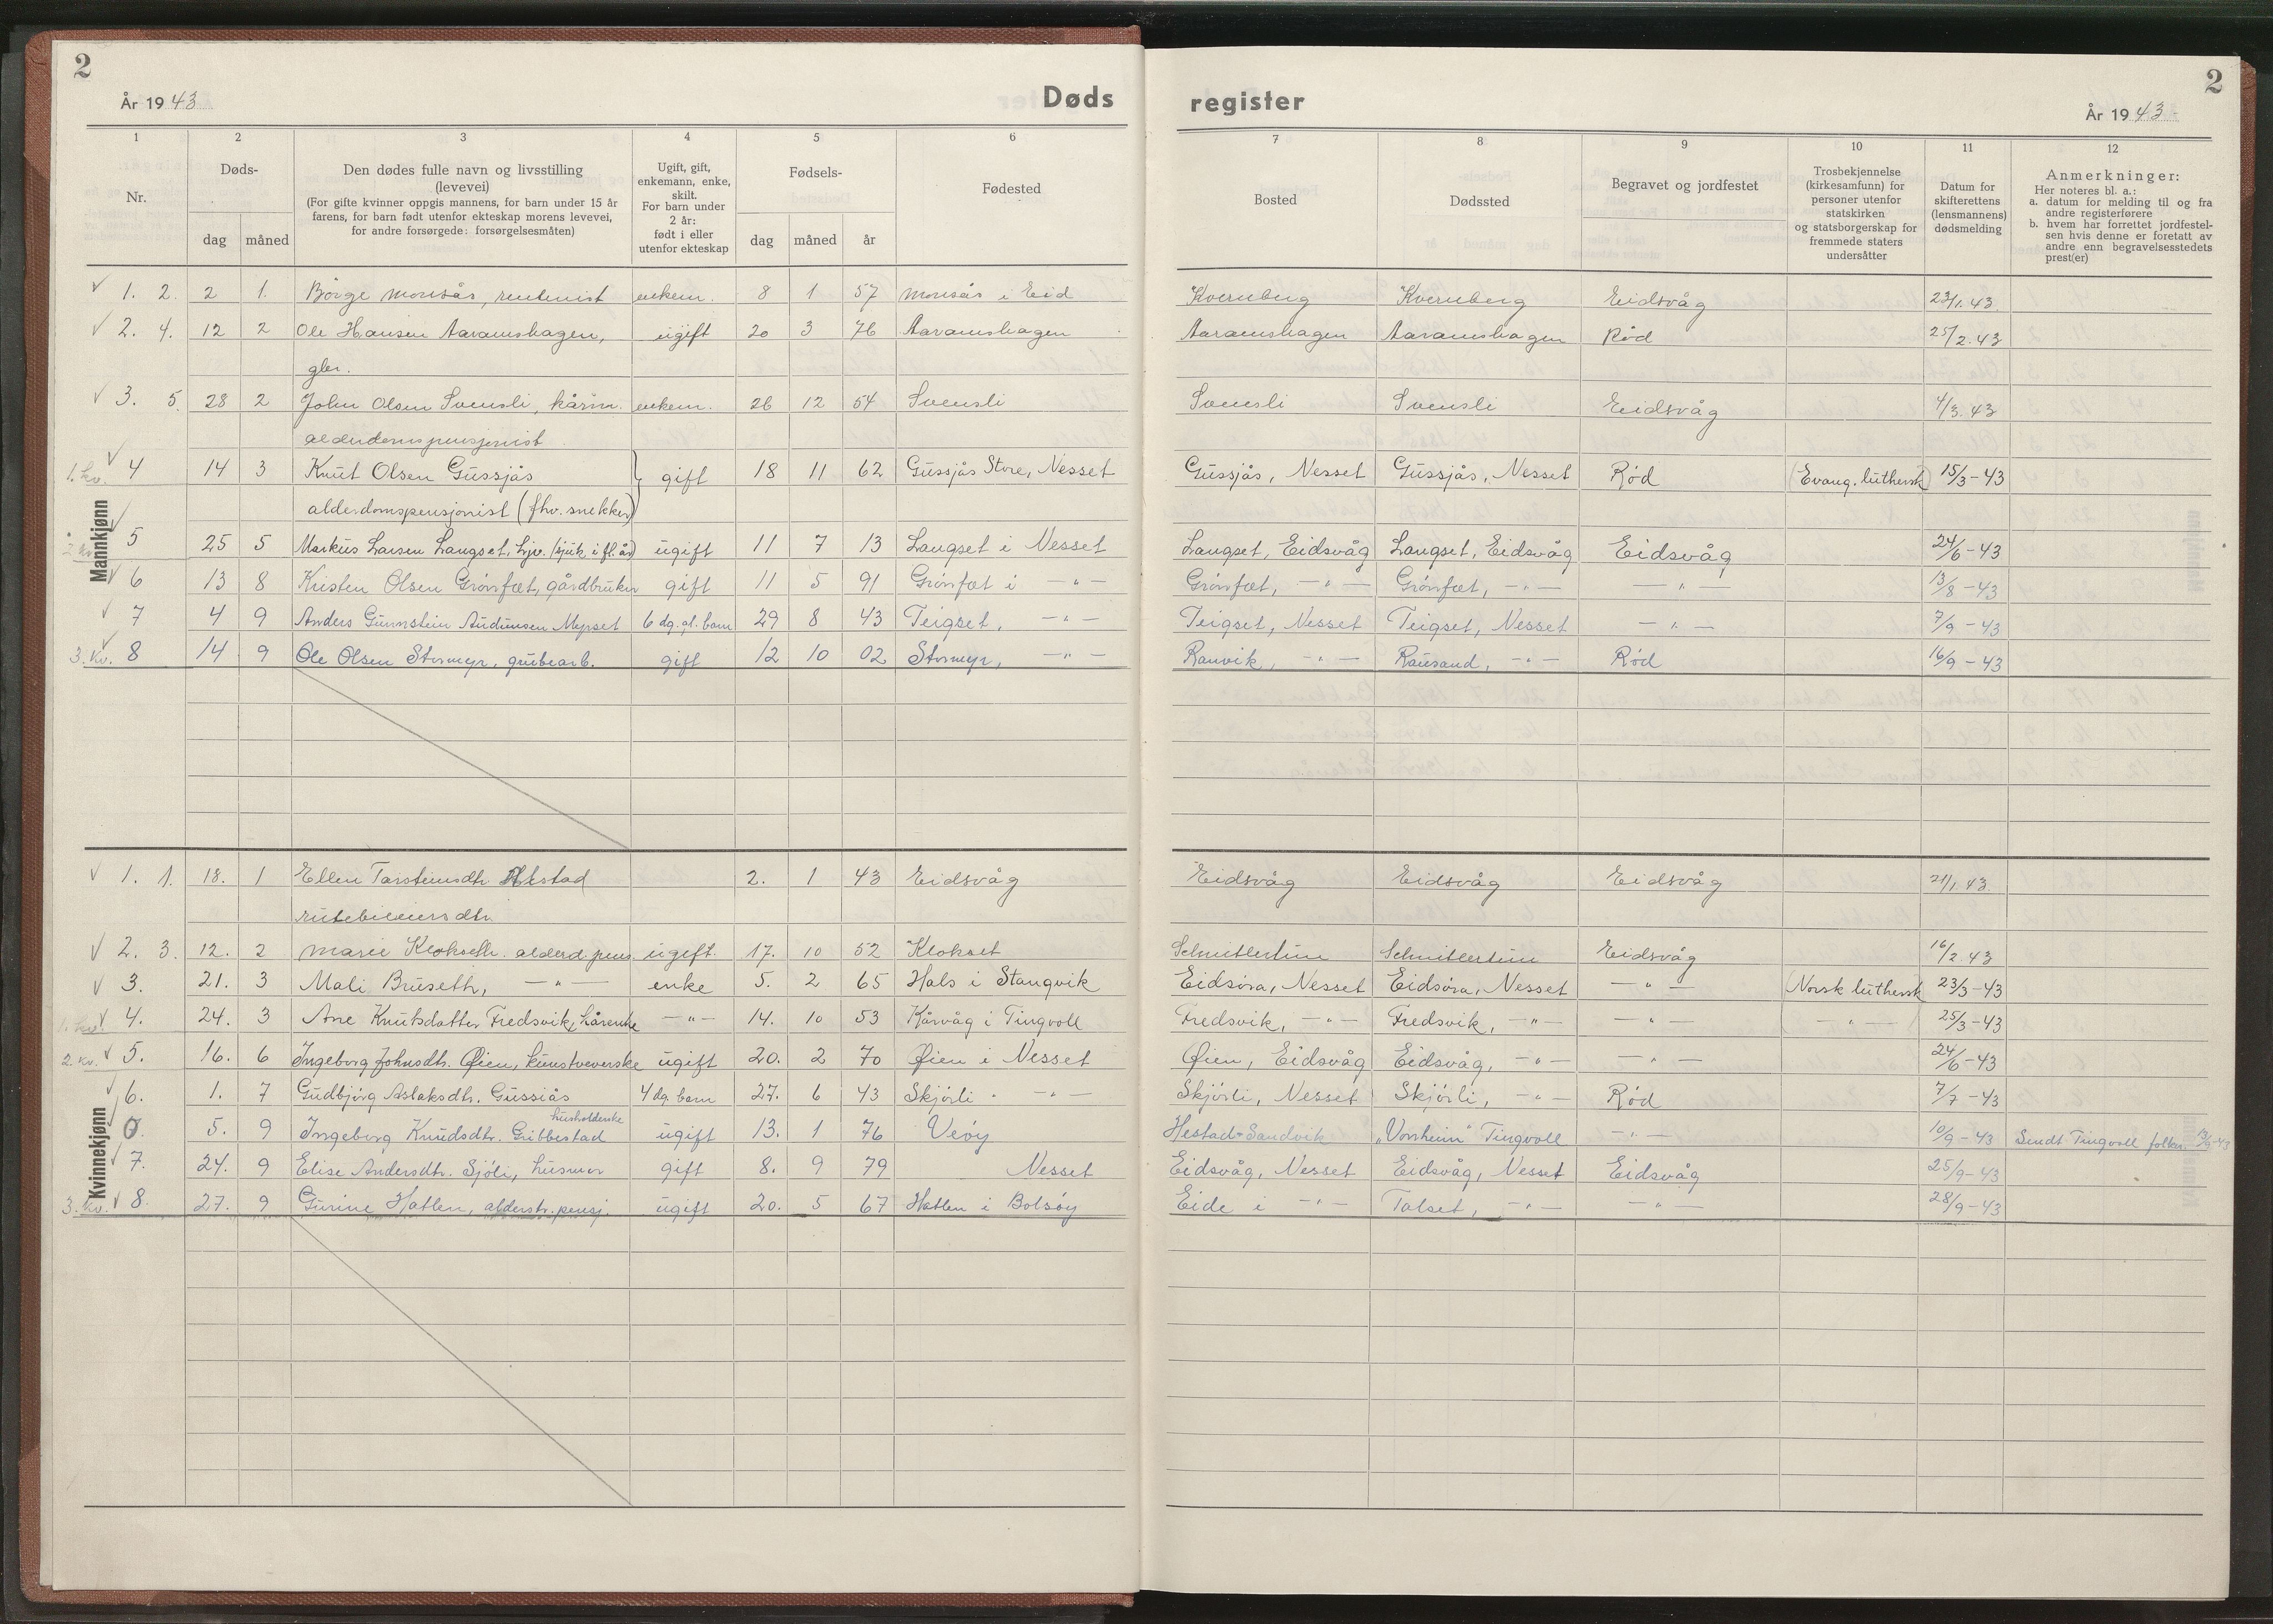 2
År 1943
Døds
register
År 1943
2
1 2 3 4 5 6 7 8 9 10 11 12
Nr.
Døds-
dag måned
Den dødes fulle navn og livsstilling
(levevei)
(For gifte kvinner oppgis mannens, for barn under 15 år
farens, for barn født utenfor ekteskap morens levevei,
for andre forsørgede: forsørgelsesmåten)
Ugift, gift,
enkemann, enke,
skilt.
For barn under
2 år:
født i eller
utenfor ekteskap
Fødsels-
dag måned år
Fødested
Bosted
Dødssted
Begravet og jordfestet
Trosbekjennelse
(kirkesamfunn) for
personer utenfor
statskirken
og statsborgerskap for
fremmede staters
undersåtter
Datum for
skifterettens
(lensmannens)
dødsmelding
Anmerkninger:
Her noteres bl. a.:
a. datum for melding til og fra
andre registerførere
b. hvem har forrettet jordfestel-
sen hvis denne er foretatt av
andre enn begravelsesstedets
prest(er)
Mannkjønn
1. 2. 2 1. Börge Monsås, rentenist enkem. 8 1 57 Monsås i Eid Kvernberg Kvernberg Eidsvåg 23/1.43
2. 4. 12 2 Ole Hansen Aaramshagen, ugift 20 3 76 Aaramshagen Aaramshagen Aaramshagen Rød 25/2.43
gbr.
3. 5. 28 2 John Olsen Svensli, kårm. enkem. 26 12 54 Svensli Svensli Svensli Eidsvåg 4/3.43
alderdomspensjonist
1. kv. 4 14 3 Knut Olsen Gussjås gift 18 11 62 Gussjås Store, Nesset Gussjås, Nesset Gussjås, Nesset Rød (Evang. luthersk) 15/3-43
alderdomspensjonist (fhv. snekker)
2 kv. 5 25 5 Markus Larsen Langset, hjv. (sjuk i fl. år) ugift 11 7 13 Langset i Nesset Langset, Eidsvåg Langset, Eidsvåg Eidsvåg 24/6-43
6 13 8 Kristen Olsen Grönfæt, gårdbruker gift 11 5 91 Grönfæt i -"- Grönfæt, -"- Grönfæt, -"- -"- 13/8-43
7 4 9 Anders Gunnstein Audunsen Myrset 6 dg. gl. barn 29 8 43 Teigset, -"- Teigset, Nesset Teigset, Nesset -"- 7/9-43
3. kv. 8 14 9 Ole Olsen Stormyr, grubearb. gift 12 10 02 Stormyr, -"- Ranvik, -"- Rausand, -"- Rød 16/9-43
Kvinnekjønn
1. 1. 18. 1 Ellen Tarsteinsdtr. 2. 1 43 Eidsvåg Eidsvåg Eidsvåg Eidsvåg 21/1.43
rutebileiersdtr.
2. 3. 12. 2 Marie Klokseth. alderd. pens. ugift. 17. 10 52 Klokset Schnitlertun Schnitlertun Eidsvåg 16/2.43
3. 21. 3 Mali Bruseth, -"- enke 5. 2 65 Hals i Stangvik Eidsöra, Nesset Eidsöra, Nesset -"- (Norsk luthersk 23/3-43
1. kv. 4. 24. 3 Ane Knutsdatter Fredsvik, kårenke -"- 14. 10 53 Kårvåg i Tingvoll Fredsvik, -"- Fredsvik, -"- -"- -"- 25/3-43
2. kv. 5. 16. 6 Ingeborg Johnsdtr. Øien, kunstveverske ugift 20. 2 70 Øien i Nesset Øien, Eidsvåg Eidsvåg, -"- -"- 24/6-43
6. 1. 7 Gudbjörg Aslaksdtr. Gussiås 4 dg. barn 27. 6 43 Skjörli -"- Skjörli, Nesset Skjörli, -"- Rød 7/7-43
husholderske
0. 5. 9 Ingeborg Knudsdtr. Gribbestad ugift 13. 1 76 Veöy Hestad-Sandvik "Vonheim" Tingvoll -"- 10/9-43 Sendt Tingvoll folker. 13/9-43
7. 24. 9 Elise Andersdtr. Sjöli, husmor gift 8. 9 79 Nesset Eidsvåg, Nesset Eidsvåg, Nesset Eidsvåg 25/9-43
3. kv. 8. 27. 9 Gurine Hatlen, alderstr. pensj. ugift 20. 5 67 Hatlen i Bolsöy Eide i -"- Talset, -"- -"- 28/9-43